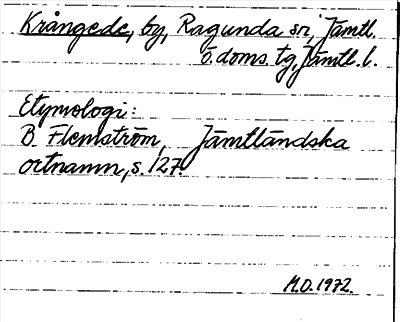 Krångede, by, Ragunda sn, Jämtl.
ö. doms. tg, Jämtl. l.
Etymologi:
B. Flemström, Jämtländska
ortnamn, s. 127.
M.O. 1972.